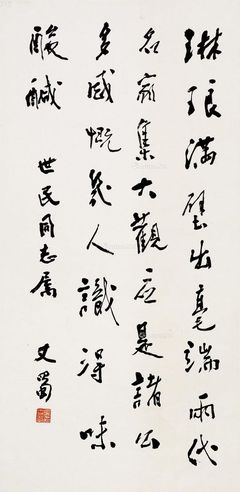 琳琅满壁出毫端両代
名家集大觀应是諸公
多感慨幾人識得味
酸醎
世民同志属
史蜀